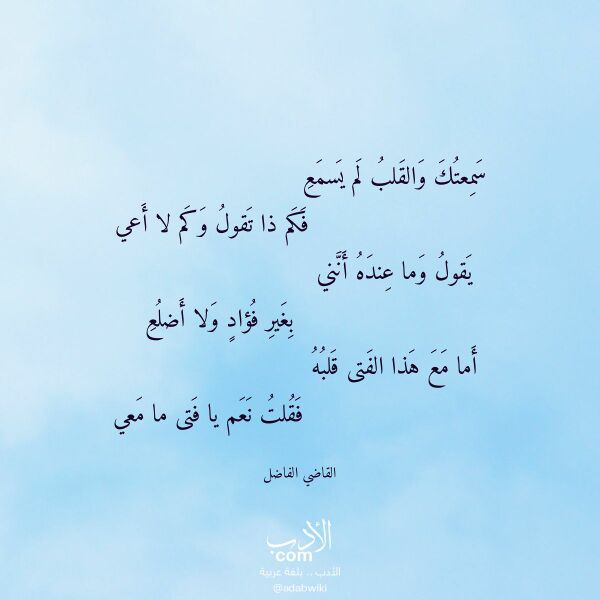 سَمِعتُكَ وَالقَلبُ لَم يَسمَعِ
فَكَم ذا تَقولُ وَكَم لا أَعي
يَقولُ وَما عِندَهُ أَنَّني
بِغَيرِ فُؤادٍ وَلا أَضلُعِ
أَما مَعَ هَذا الفَتى قَلبُهُ
فَقُلتُ نَعَم يا فَتى ما مَعي
القاضي الفاضل
الأدب
com
الأدب .. بلغة عربية
@adabwiki